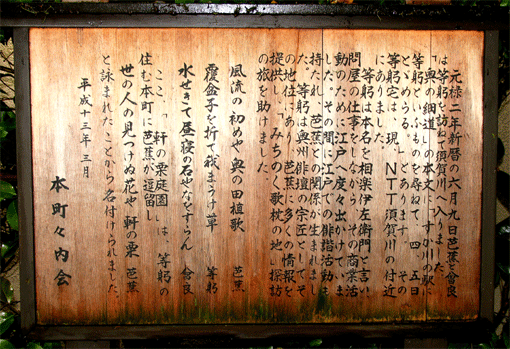 元禄二年新暦の六月九日芭蕉と曾良
は等躬を訪ねて須賀川へ入りました。
「奥の細道」の本文に「すか川の駅に
等躬といふものを尋ねて、四、五日
とゞめらる」とあります。その
等躬宅は、現、NTT須賀川の付近
にありました。
等躬は本名を相楽伊左衛門と言い
問屋の仕事をしながら、その商業活
動のために江戸へ度々出かけていま
した。その間に江戸での俳諧活動も
持たれ、芭蕉との関係が生まれまし
た。等躬は奥州俳壇の宗匠としてそ
の地位にあり、芭蕉に多くの情報を
提供し、みちのく歌枕の地」探訪
の旅を助けました。
風流の初めや奥の田植歌 芭蕉
覆盆子を折て我まうけ草 等躬
水せきて昼寝の石やなをすらん 曾良
ここ、「軒の栗庭園」は、等躬の
住む本町に芭蕉が逗留し
世の人の見つけぬ花や軒の栗 芭蕉
と詠まれたことから名付けられました。
平成十三年三月
本町々内会